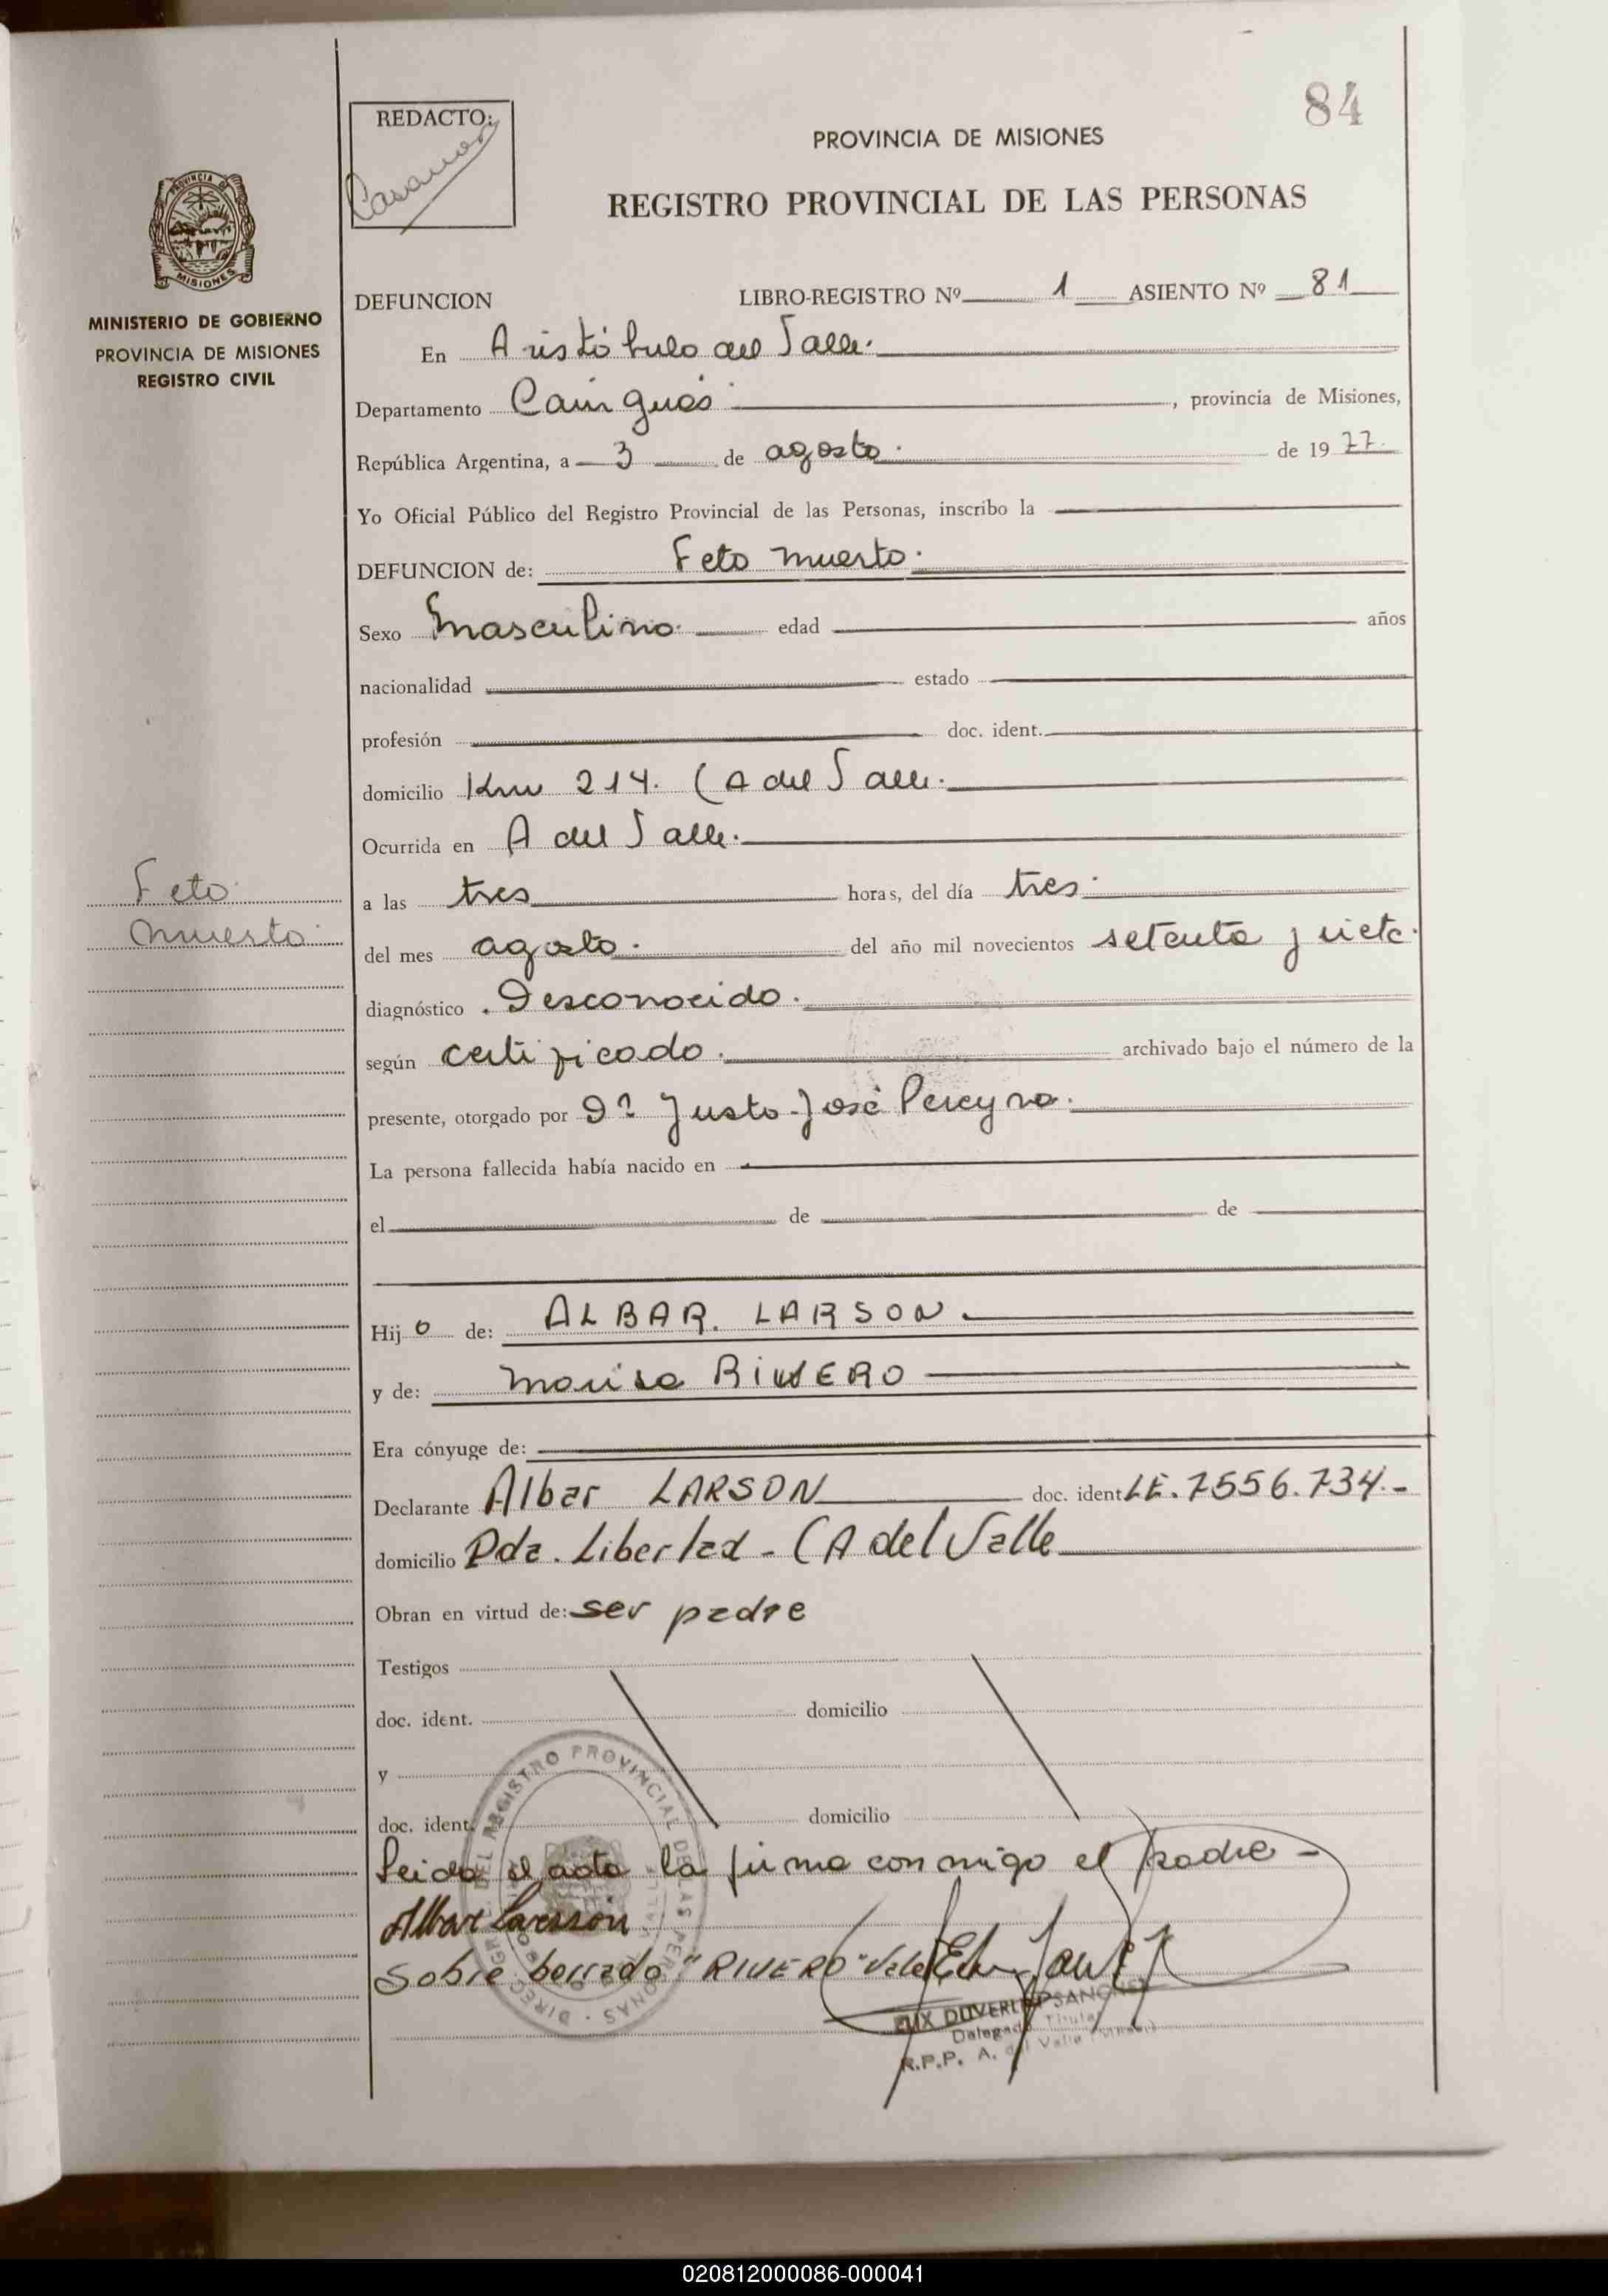 84
REDACTO:
PROVINCIA DE MISIONES
REGISTRO PROVINCIAL DE LAS PERSONAS
PROVINCIA DE
MISIONES
MINISTERIO DE GOBIERNO
PROVINCIA DE MISIONES
REGISTRO CIVIL
DEFUNCION LIBRO-REGISTRO Nº 1 ASIENTO Nº 81
En Aristóbulo del Valle.
Departamento Cainguás , provincia de Misiones,
República Argentina, a 3 de agosto. de 1977.
Yo Oficial Público del Registro Provincial de las Personas, inscribo la
DEFUNCION de: Feto muerto.
Sexo Masculino. edad años
nacionalidad estado
profesión doc. ident.
domicilio Km 214. (A del Valle.
Ocurrida en A del Valle.
Feto
muerto.
a las tres horas, del día tres.
del mes agosto. del año mil novecientos setenta y siete.
diagnóstico . Desconocido.
según certificado. archivado bajo el número de la
presente, otorgado por Dr Justo José Pereyra.
La persona fallecida había nacido en
el de de
Hijo de: ALBAR. LARSON.
y de: Marisa RIVERO
Era cónyuge de:
Declarante Albar LARSON doc. ident LE. 7556.734.-
domicilio Pda. Libertad - (A del Valle
Obran en virtud de: ser padre
Testigos
doc. ident. domicilio
y
doc. ident. domicilio
Leida el acta la firma conmigo el padre -
Albar Larsson
Sobre borrado "RIVERO" Vale
DEL REGISTRO PROVINCIAL DE LAS PERSONAS
Delegado Titular
R.P.P. A. del Valle
020812000086-000041